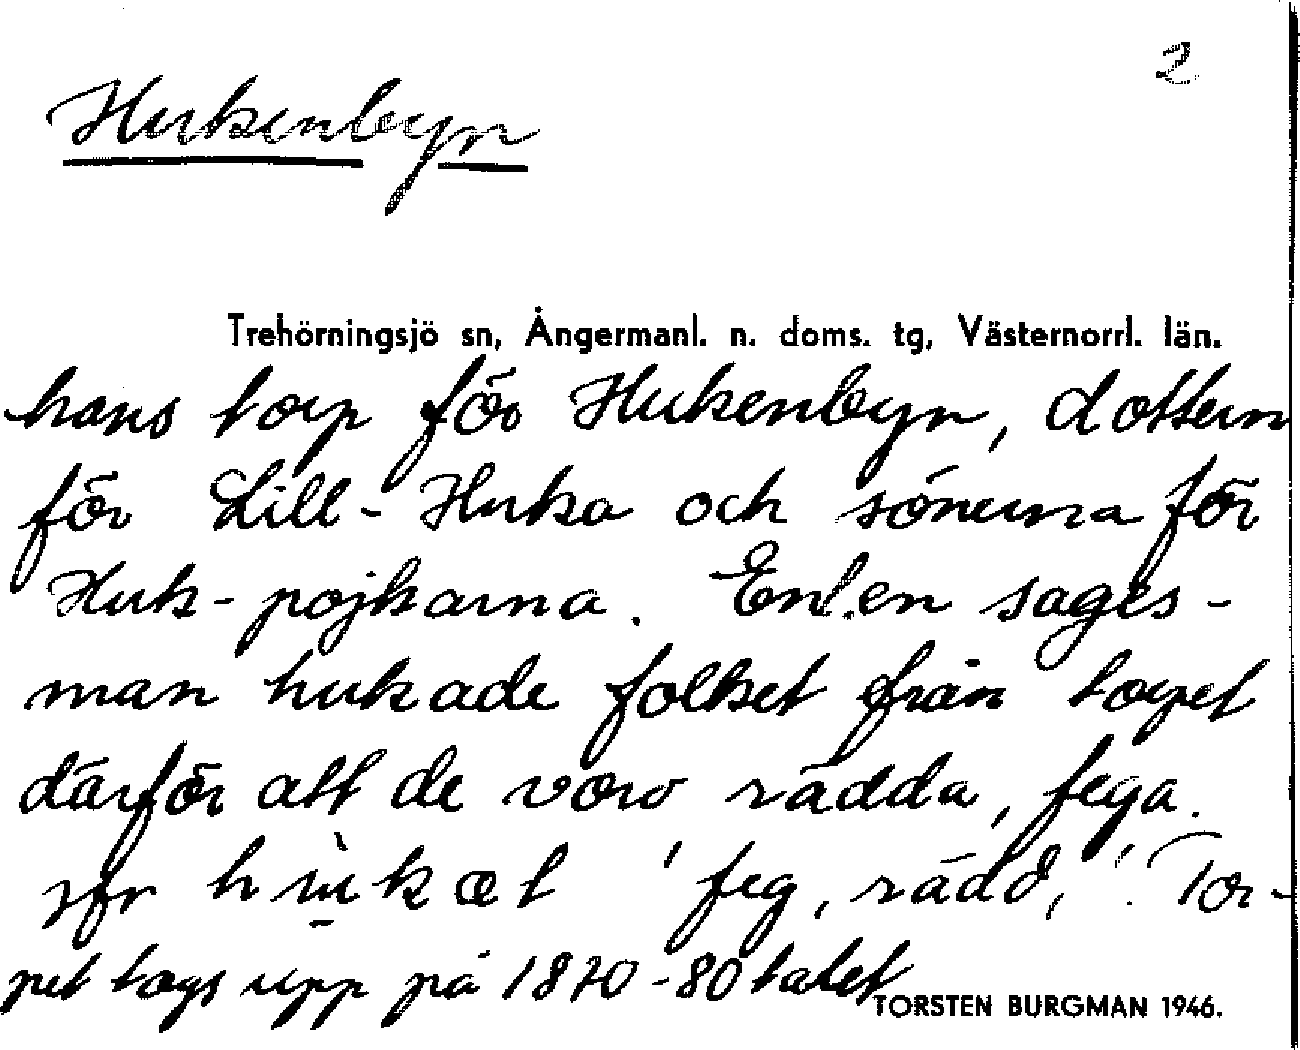 2
Hukenbyn
Trehörningsjö sn, Ångermanl. n. doms. tg, Västernorrl. län.
hans torp för Hukenbyn, dottern
för Lill-Huka och sönerna för
Huk-pojkarna. Enl. en sages-
man hukade folket från torpet
därför att de voro rädda, fega.
jfr hukæt 'feg, rädd,'. Tor-
pet togs upp på 1870-80 talet
TORSTEN BURGMAN 1946.